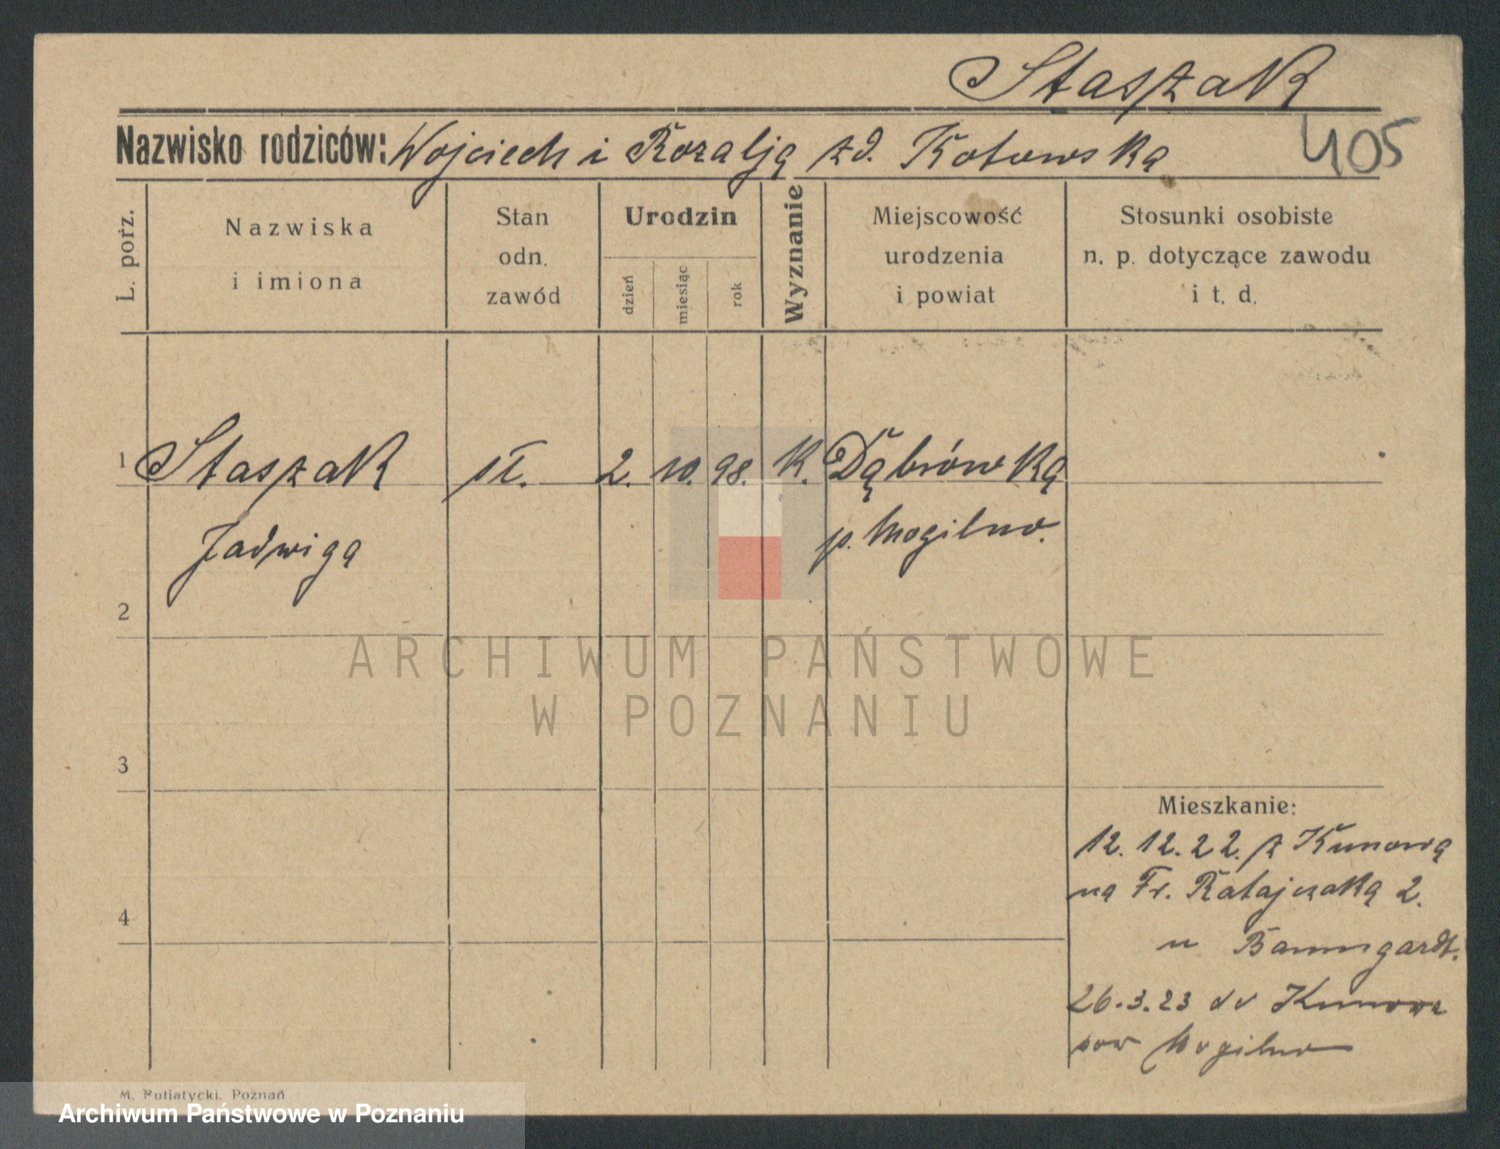 Staszak
Nazwisko rodziców: Wojciech i Rozalja zd. Kotowska
405
L. porz.
Nazwiska
i imiona
Stan
odn.
zawód
Urodzin
dzień
miesiąc
rok
Wyznanie
Miejscowość
urodzenia
i powiat
Stosunki osobiste
n. p. dotyczące zawodu
i t. d.
1 Staszak st. 2. 10. 98. K. Dąbrówka
Jadwiga p. Mogilno.
2
3
4
Mieszkanie:
12. 12. 22. z Kunowa
na Fr. Ratajczaka 2.
u Baumgardt.
26.3.23 do Kunowa
pow Mogilno
ARCHIWUM PAŃSTWOWE
W POZNANIU
M. Putiatycki, Poznań
Archiwum Państwowe w Poznaniu